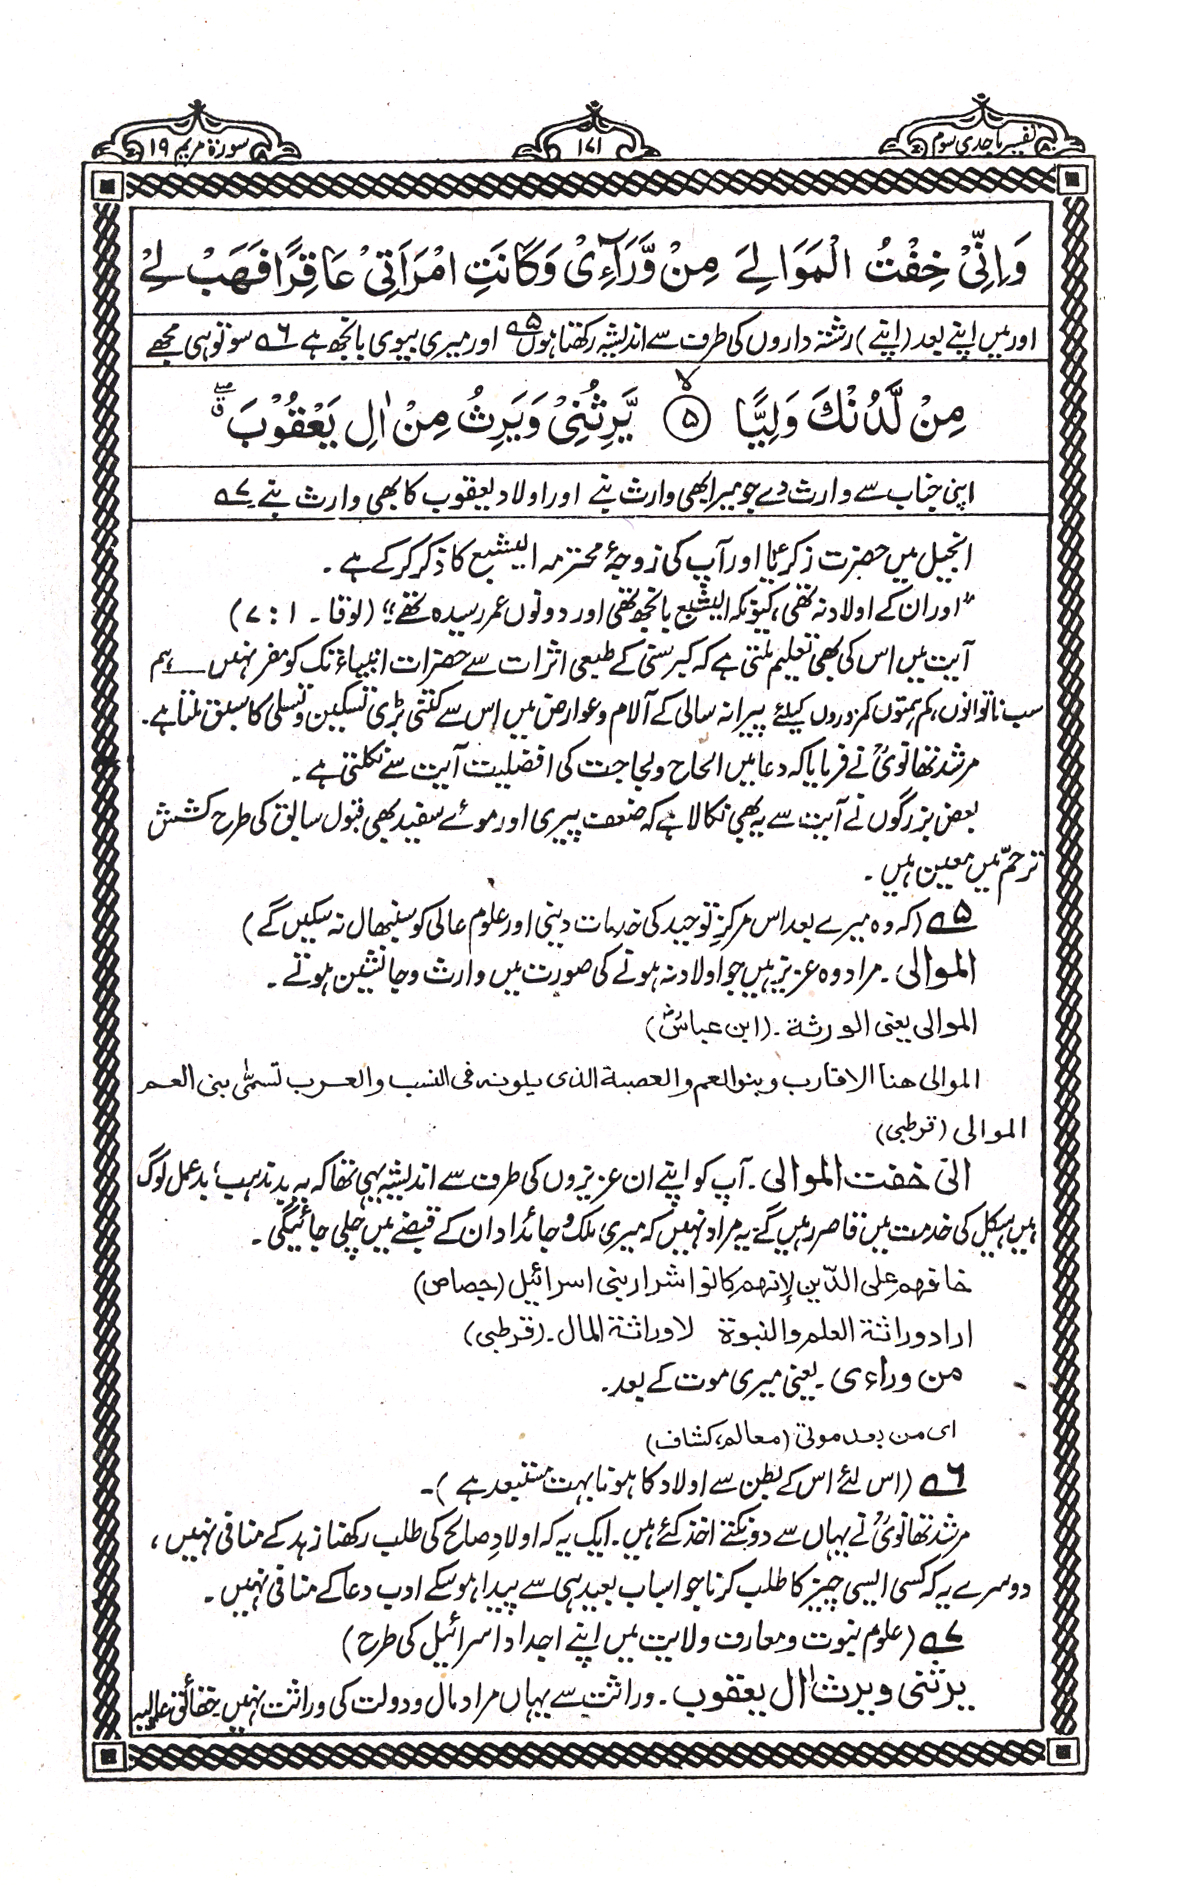 تفسیر ماجدی سوم
۱۷۱
سورۃ مریم ۱۹
وَاِنِّیْ خِفْتُ الْمَوَالِیَ مِنْ وَّرَآءِیْ وَکَانَتِ امْرَاَتِیْ عَاقِرًا فَهَبْ لِیْ
اور میں اپنے بعد (اپنے) رشتہ داروں کی طرف سے اندیشہ رکھتا ہوں ۵؎ اور میری بیوی بانجھ ہے ۶؎ سو تو ہی مجھے
مِنْ لَّدُنْكَ وَلِیًّا ۵ یَّرِثُنِیْ وَیَرِثُ مِنْ اٰلِ یَعْقُوْبَ
اپنی جناب سے وارث دے جو میرا بھی وارث بنے اور اولاد یعقوب کا بھی وارث بنے ۷؎
انجیل میں حضرت زکریاؑ اور آپ کی زوجۂ محترمہ الیشبع کا ذکر کر کے ہے۔
"اور ان کے اولاد نہ تھی، کیونکہ الیشبع بانجھ تھی اور دونوں عمر رسیدہ تھے" (لوقا۔ ۱ : ۷)
آیت میں اس کی بھی تعلیم ملتی ہے کہ کبر سنی کے طبعی اثرات سے حضرات انبیاءؑ تک کو مفر نہیں ــــ ہم
سب ناتوانوں، کم ہمتوں کمزوروں کیلئے پیرانہ سالی کے آلام و عوارض میں اس سے کتنی بڑی تسکین و تسلی کا سبق ملتا ہے۔
مرشد تھانویؒ نے فرمایا کہ دعا میں الحاح و لجاجت کی افضلیت آیت سے نکلتی ہے۔
بعض بزرگوں نے آیت سے یہ بھی نکالا ہے کہ ضعف پیری اور موئے سفید بھی قبول سابق کی طرح کشش
ترحّم میں معین ہیں۔
۵؎ (کہ وہ میرے بعد اس مرکزِ توحید کی خدمات دینی اور علوم عالی کو سنبھال نہ سکیں گے)
الموالی۔ مراد وہ عزیز ہیں جو اولاد نہ ہونے کی صورت میں وارث و جانشین ہوتے۔
الموالی یعنی الورثة۔ (ابن عباسؓ)
الموالی هنا الاقارب وبنو العم والعصبة الذی یلونه فی النسب والعرب تسمّٰی بنی العم
الموالی (قرطبی)
انی خفت الموالی۔ آپ کو اپنے ان عزیزوں کی طرف سے اندیشہ یہی تھا کہ یہ بد مذہب، بد عمل لوگ
ہیں ہیکل کی خدمت میں قاصر رہیں گے۔ یہ مراد نہیں کہ میری ملک و جائداد ان کے قبضے میں چلی جائیگی۔
خافهم علی الدّین لانهم کانوا شرار بنی اسرائیل (جصاص)
اراد وراثة العلم والنبوة لا وراثة المال۔ (قرطبی)
من وراءی۔ یعنی میری موت کے بعد۔
ای من بعد موتی (معالم، کشاف)
۶؎ (اس لئے اس کے بطن سے اولاد کا ہونا بہت مستبعد ہے)۔
مرشد تھانویؒ نے یہاں سے دو نکتے اخذ کئے ہیں۔ ایک یہ کہ اولادِ صالح کی طلب رکھنا زہد کے منافی نہیں،
دوسرے یہ کہ کسی ایسی چیز کا طلب کرنا جو اسباب بعید ہی سے پیدا ہو سکے ادب دعا کے منافی نہیں۔
۷؎ (علوم نبوت و معارف ولایت میں اپنے اجداد اسرائیل کی طرح)
یرثنی ویرث اٰل یعقوب۔ وراثت سے یہاں مراد مال و دولت کی وراثت نہیں حقائق عالیہ